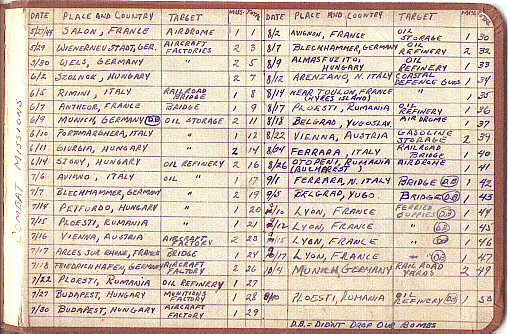 COMBAT MISSIONS
DATE PLACE AND COUNTRY TARGET MISS. TOTAL
5/27/44 SALON, FRANCE AIRDROME 1 1
5/29 WIENERNEUSTADT, GER. AIRCRAFT FACTORIES 2 3
5/30 WELS, GERMANY " 2 5
6/2 SZOLNOK, HUNGARY " 2 7
6/5 RIMINI, ITALY RAILROAD BRIDGE 1 8
6/7 ANTHEOR, FRANCE BRIDGE 1 9
6/9 MUNICH, GERMANY (D.B) OIL STORAGE 2 11
6/10 PORTMARGHERA, ITALY " 1 12
6/11 GIORGIA, HUNGARY " 2 14
6/14 SZONY, HUNGARY OIL REFINERY 2 16
7/6 AVIANO, ITALY OIL " 1 17
7/7 BLECHHAMMER, GERMANY " 2 19
7/14 PETFURDO, HUNGARY " 1 20
7/15 PLOESTI, RUMANIA " 1 21
7/16 VIENNA, AUSTRIA AIRCRAFT FACTORY 2 23
7/17 ARLES SUR RHONE, FRANCE BRIDGE 1 24
7/18 FRIEDRICHAFEN, GERMANY AIRCRAFT FACTORY 2 26
7/22 PLOESTI, RUMANIA OIL REFINERY 1 27
7/27 BUDAPEST, HUNGARY MUNITIONS FACTORY 1 28
7/30 BUDAPEST, HUNGARY AIRCRAFT FACTORY 1 29
DATE PLACE AND COUNTRY TARGET MISS
8/2 AVIGNON, FRANCE OIL STORAGE 1 30
8/7 BLECHHAMMER, GERMANY OIL REFINERY 2 32
8/9 ALMASFUZITO, HUNGARY OIL REFINERY 1 33
8/12 ARENZANO, N. ITALY COASTAL DEFENCE GUNS 1 34
8/14 NEAR TOULON, FRANCE (HYRES ISLAND) " 1 35
8/17 PLOESTI, RUMANIA OIL REFINERY 1 36
8/18 BELGRAD, YUGOSLAV. AIRDROME 1 37
8/22 VIENNA, AUSTRIA GASOLINE STORAGE 2 39
8/24 FERRARA, ITALY RAILROAD BRIDGE 1 40
8/26 OTOPENI, RUMANIA (BUCHAREST) AIRDROME 1 41
9/1 FERRARA, N. ITALY BRIDGE (D.B) 1 42
9/5 BELGRAD, YUGO BRIDGE (D.B) 1 43
9/10 LYON, FRANCE FERRIED SUPPLIES (D.B) 1 44
9/12 LYON, FRANCE " 1 45
9/15 LYON, FRANCE " 1 46
9/17 LYON, FRANCE " 1 47
10/4 MUNICH, GERMANY RAILROAD YARDS 2 49
PLOESTI, RUMANIA OIL REFINERY (D.B) 1 50
D.B. = DIDN'T DROP OUR BOMBS